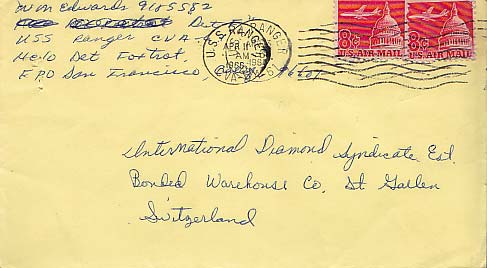 Wm Edwards 9105582
Det Foxtrot
USS Ranger CVA-
Helo Det Foxtrot
FPO San Francisco Calif 96601
U.S.S. RANGER
APR 11
AM
1966
8¢ 8¢
U.S. AIR MAIL U.S. AIR MAIL
International Diamond Syndicate Est.
Bonded Warehouse Co, St Gallen
Switzerland